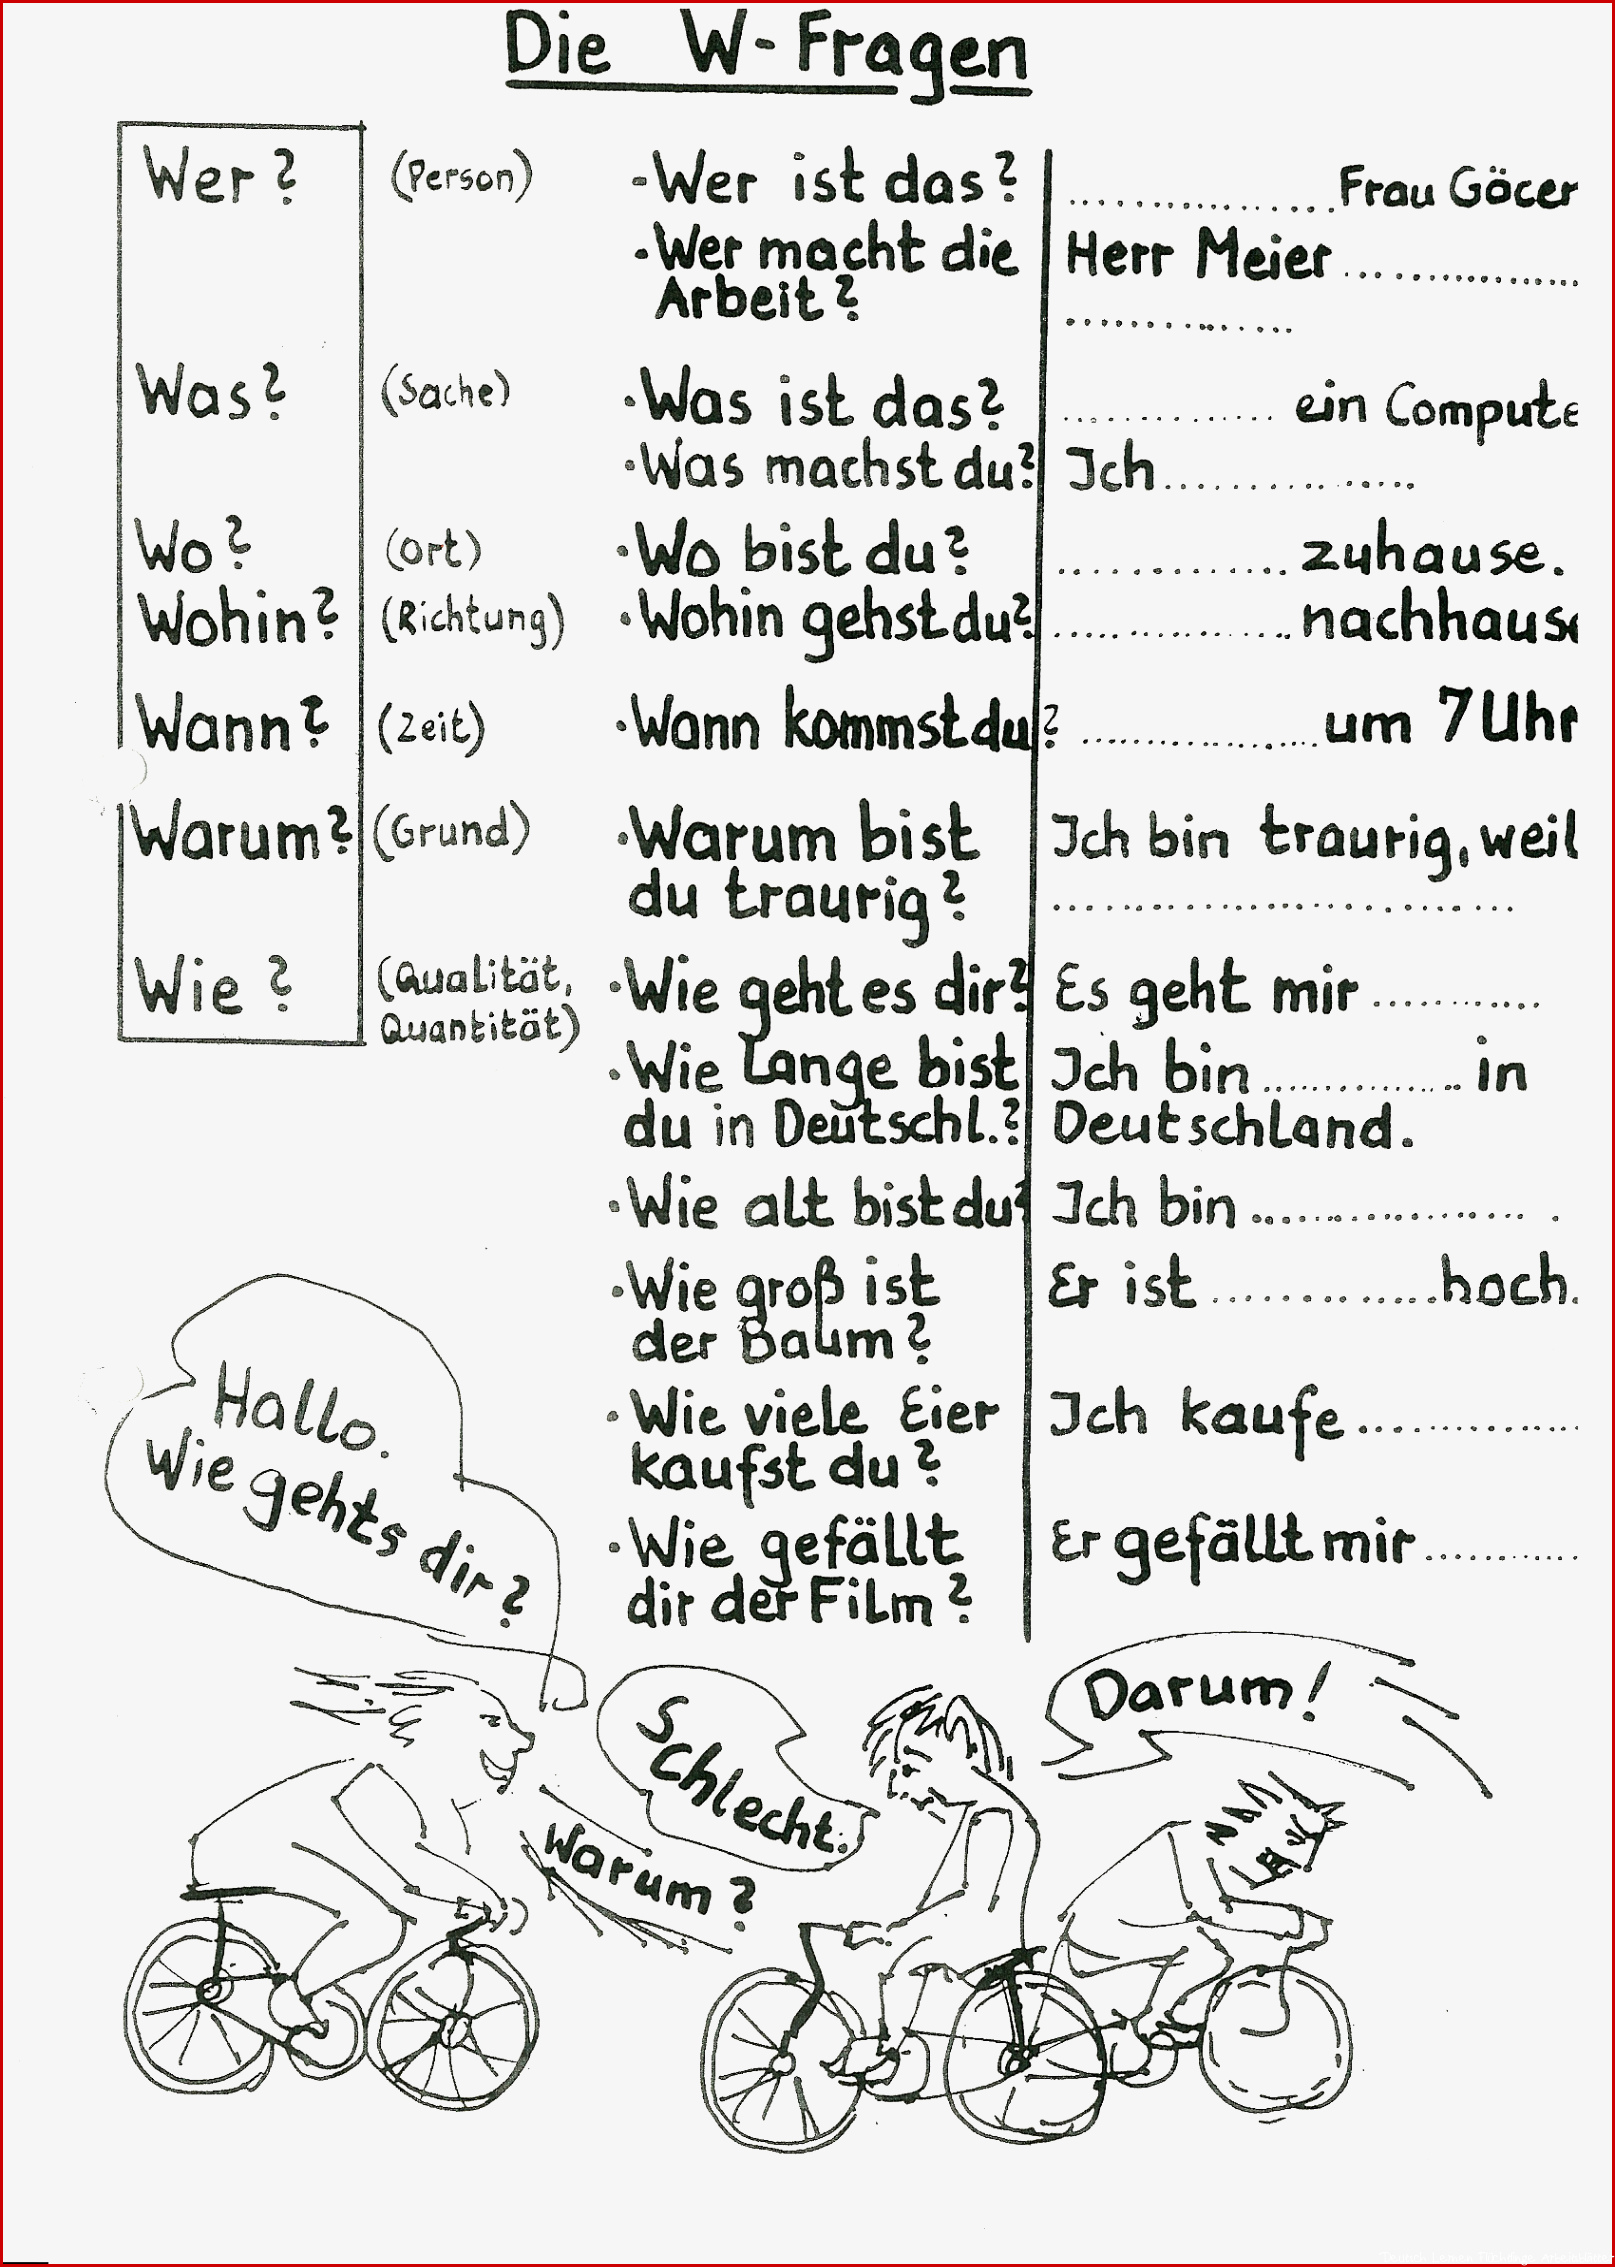 Die W-Fragen
Wer? (Person) -Wer ist das? ................. Frau Göcer
·Wer macht die Herr Meier .................
Arbeit? ............
Was? (Sache) ·Was ist das? .............. ein Compute
·Was machst du? Ich ...............
Wo? (Ort) ·Wo bist du? .............. zuhause.
Wohin? (Richtung) ·Wohin gehst du? ................ nachhause
Wann? (Zeit) ·Wann kommst du? ................. um 7 Uhr
Warum? (Grund) ·Warum bist Ich bin traurig, weil
du traurig? ............................
Wie? (Qualität, ·Wie geht es dir? Es geht mir ...........
Quantität)
·Wie Lange bist Ich bin .............. in
du in Deutschl.? Deutschland.
·Wie alt bist du? Ich bin .................. .
·Wie groß ist Er ist .............. hoch.
der Baum?
·Wie viele Eier Ich kaufe ..............
kaufst du?
·Wie gefällt Er gefällt mir ...........
dir der Film?
Hallo.
Wie gehts dir?
Schlecht.
Warum?
Darum!